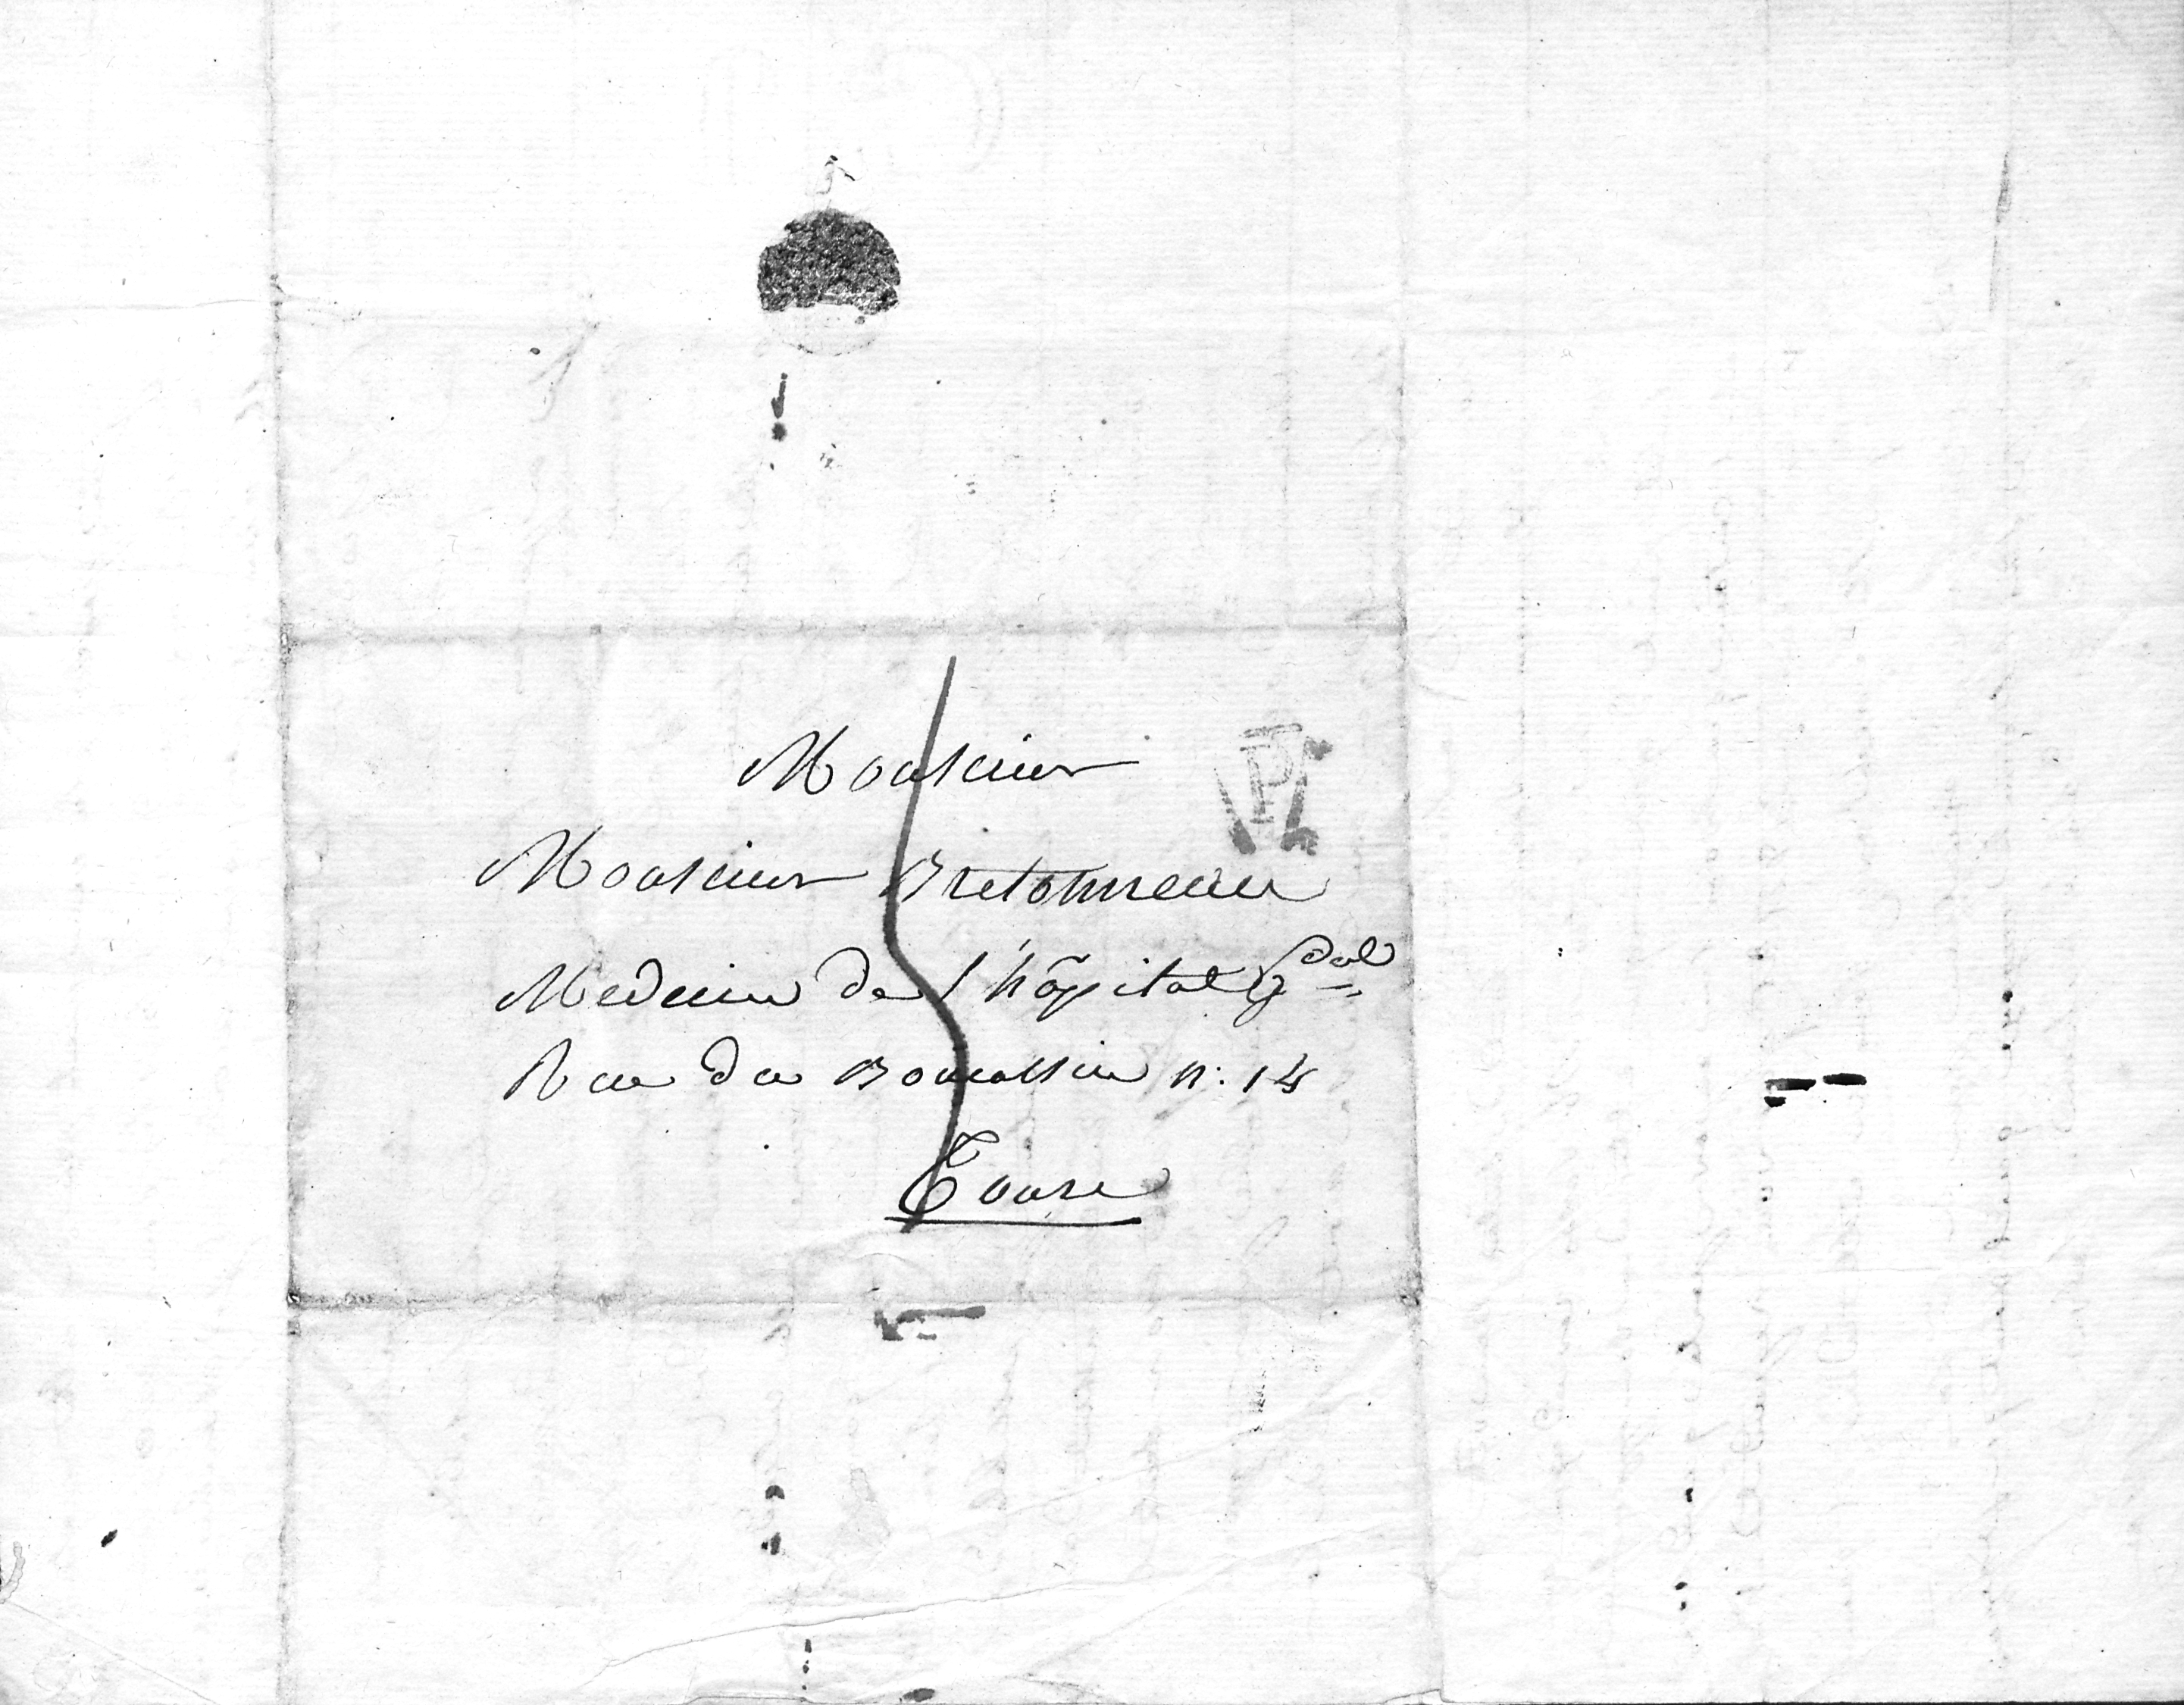 P
Monsieur
Monsieur Bretonneau
Medecin de l'hôpital gal
Rue du Boucassin n: 14
Tours